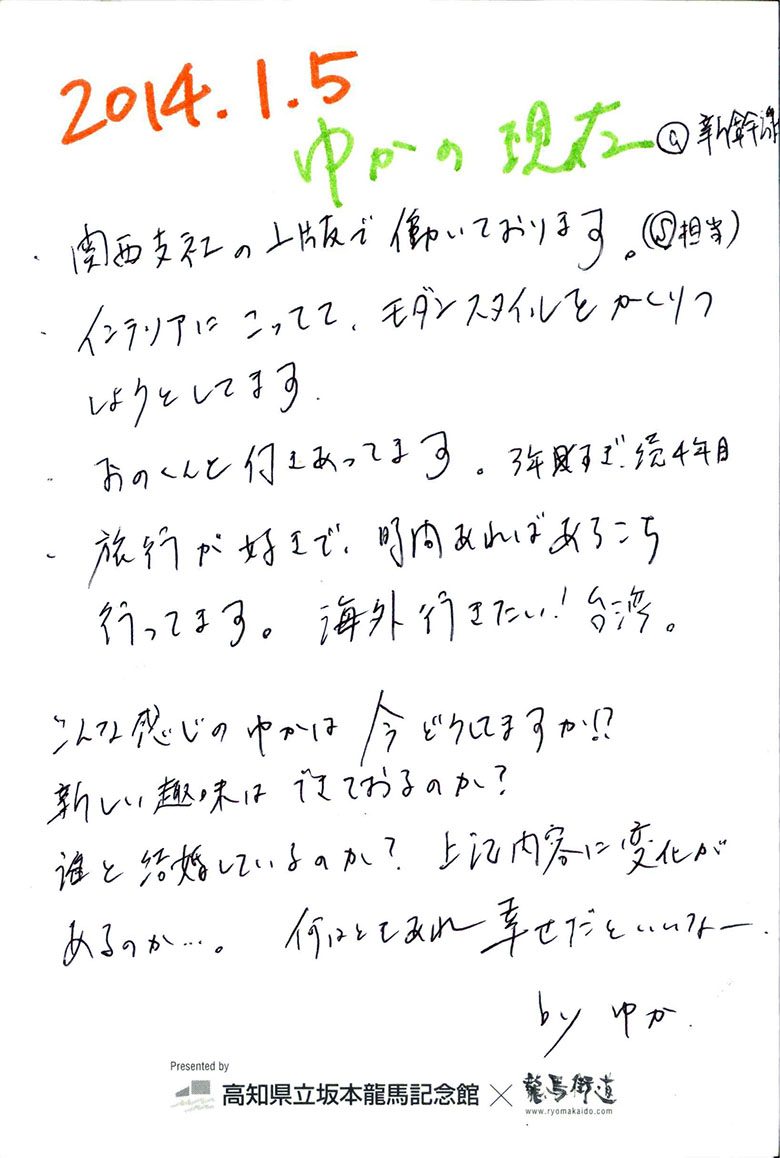 2014.1.5
ゆかの現在 @新幹線
・ 関西支社の上版で働いております。(Ⓢ担当)
・ インテリアにこってて、モダンスタイルをかくりつ
しようとしてます.
・ おのくんと付きあってます。3年目すぎ、続4年目
・ 旅行が好きで、時間あればあちこち
行ってます。海外行きたい!台湾。
こんな感じのゆかは今どうしてますか!?
新しい趣味はできておるのか?
誰と結婚しているのか?上記内容に変化が
あるのか…。何はともあれ幸せだといいなー.
by ゆか.
Presented by
高知県立坂本龍馬記念館×龍馬街道
www.ryomakaido.com